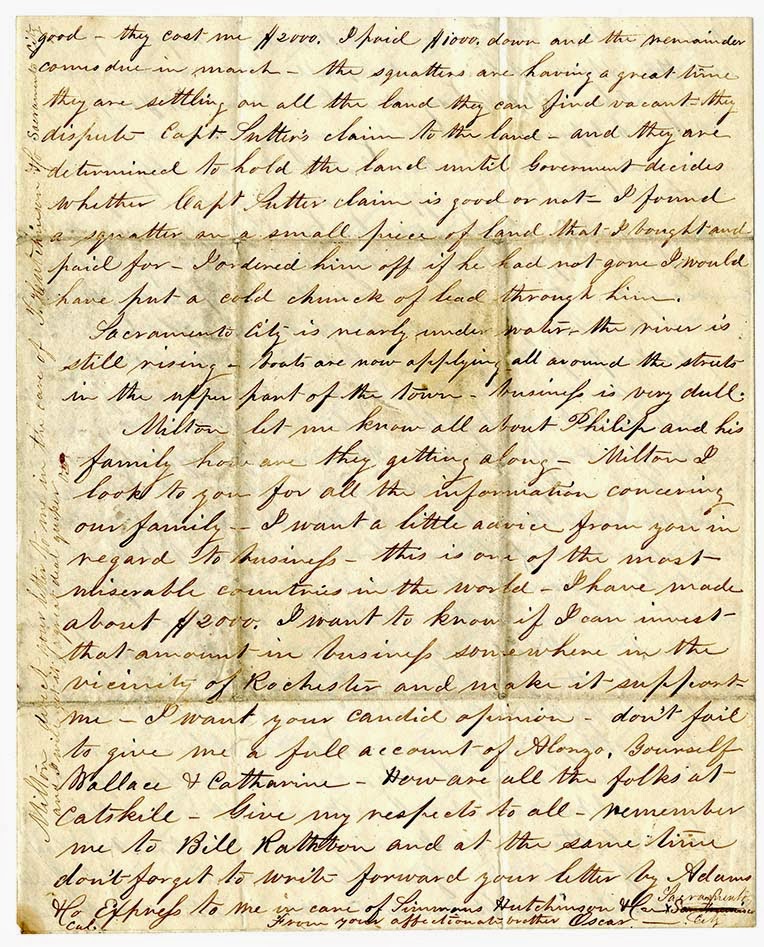 good – they cost me $2000. I paid $1000. down and the remainder
comes due in march – the squatters are having a great time
they are settling on all the land they can find vacant – they
dispute Capt. Sutter's claim to the land – and they are
determined to hold the land until Goverment decides
whether Capt Sutter claim is good or not – I found
a squatter on a small piece of land that I bought and
paid for – I ordered him off if he had not gone I would
have put a cold chunck of lead through him.
Sacramento City is nearly under water – the river is
still rising – boats are now applying all around the streets
in the upper part of the town – business is very dull.
Milton let me know all about Philip and his
family how are they getting along – Milton I
look to you for all the information concering
our family – I want a little advice from you in
regard to business – this is one of the most
miserable countries in the world – I have made
about $2000. I want to know if I can invest
that amount in business somewhere in the
vicinity of Rochester and make it support
me – I want your candid opinion – don't fail
to give me a full account of Alonzo, Yourself
Wallace & Catharine – How are all the folks at
Catskill – Give my respects to all – remember
me to Bill Rathbon and at the same time
don't forget to write forward your letter by Adams
& Co Express to me in care of Simmons Hutchinson & Co Sacramento
Cal. From your affectionate brother Oscar – City
Milton direct your letter to me in the care of Hutchinson Sacramento City
and